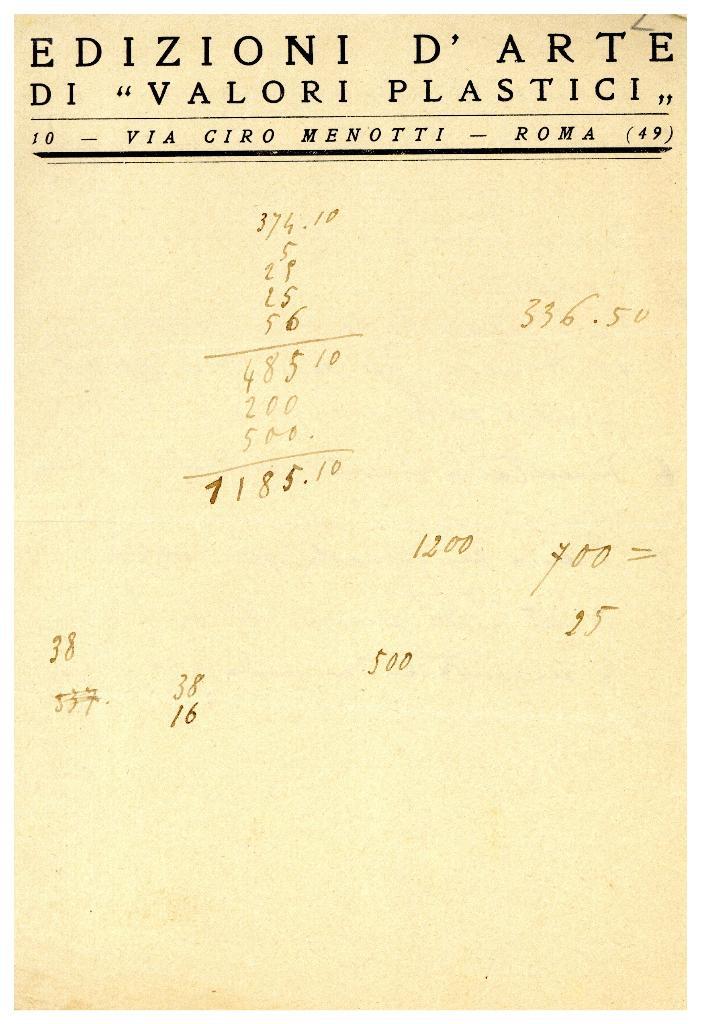 EDIZIONI D' ARTE
DI “VALORI PLASTICI„
10 — VIA CIRO MENOTTI — ROMA (49)
374.10
5
25
25
56
336.50
485 10
200
500.
1185.10
1200
700 =
25
38
500
537.
38
16